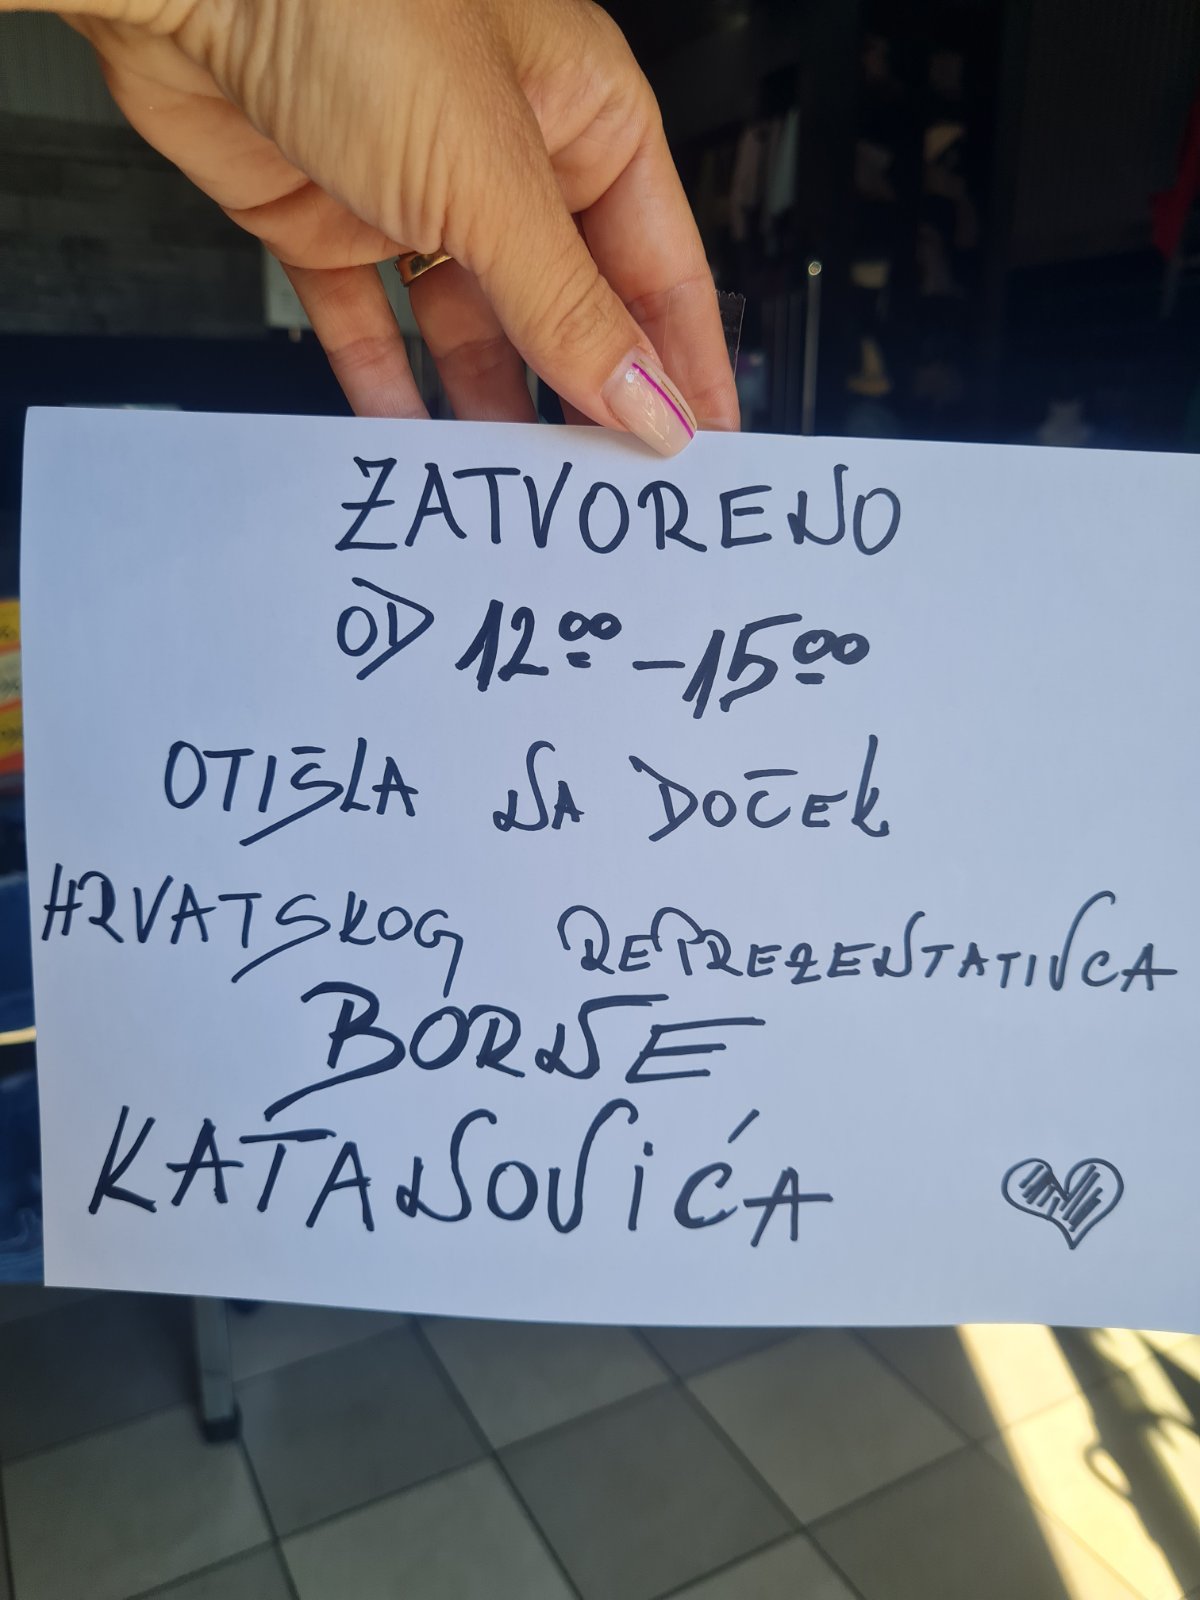 ZATVORENO
OD 12⁰⁰ - 15⁰⁰
OTIŠLA NA DOČEK
HRVATSKOG REPREZENTATIVCA
BORNE
KATANOVIĆA